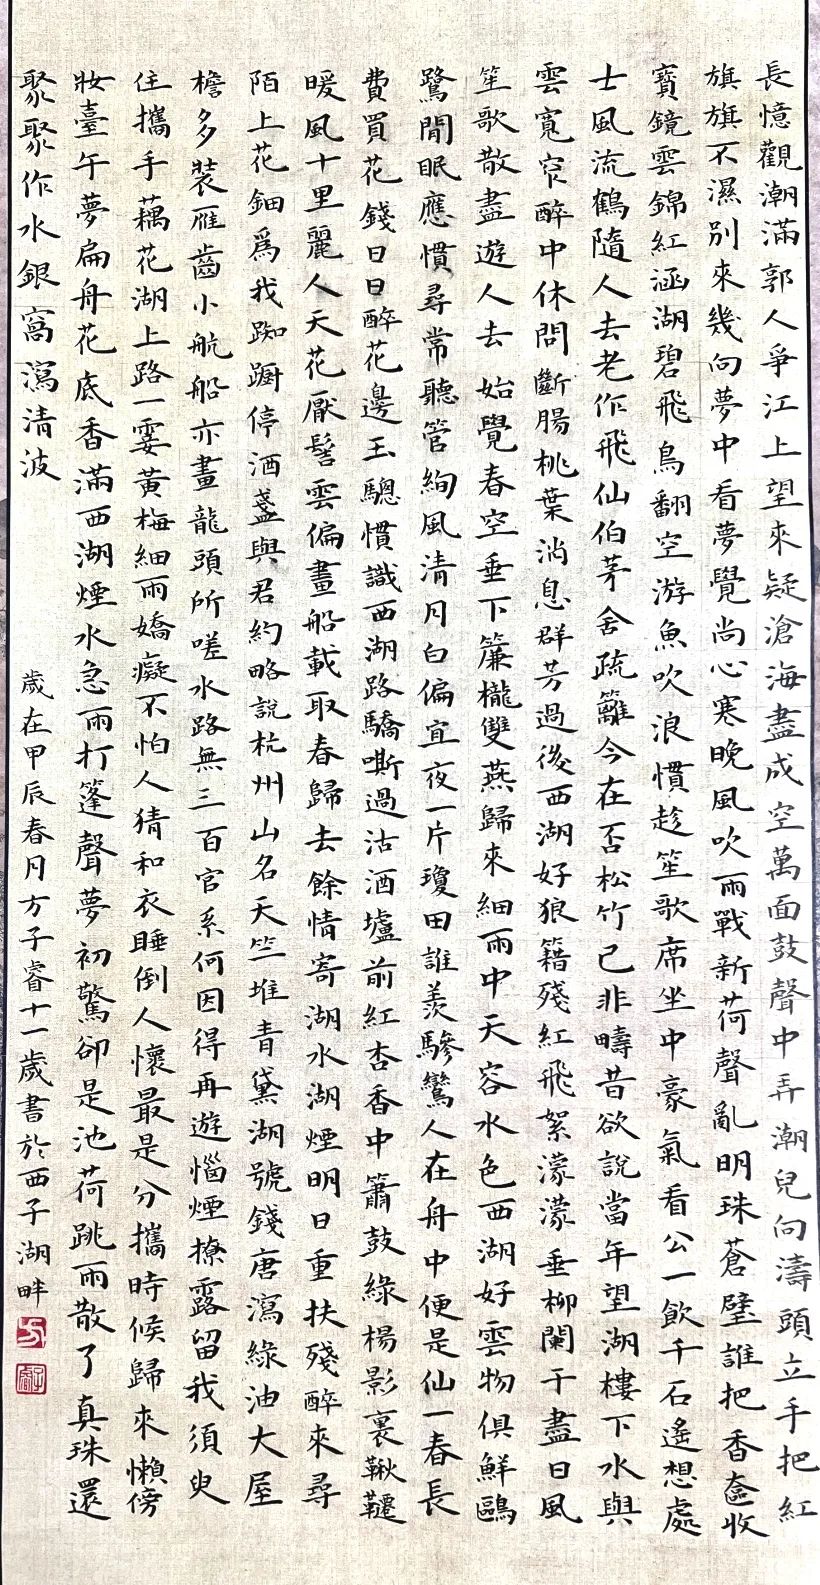 長憶觀潮滿郭人爭江上望來疑滄海盡成空萬面鼓聲中弄潮兒向濤頭立手把紅
旗旗不濕別來幾向夢中看夢覺尚心寒晚風吹雨戰新荷聲亂明珠蒼璧誰把香奩收
寶鏡雲錦紅涵湖碧飛鳥翻空游魚吹浪慣趁笙歌席坐中豪氣看公一飲千石遙想處
士風流鶴隨人去老作飛仙伯茅舍疏籬今在否松竹已非疇昔欲說當年望湖樓下水與
雲寬窄醉中休問斷腸桃葉消息群芳過後西湖好狼籍殘紅飛絮濛濛垂柳闌干盡日風
笙歌散盡遊人去始覺春空垂下簾櫳雙燕歸來細雨中天容水色西湖好雲物俱鮮鷗
鷺閒眠應慣尋常聽管絢風清月白偏宜夜一片瓊田誰羨驂鸞人在舟中便是仙一春長
費買花錢日日醉花邊玉驄慣識西湖路驕嘶過沽酒壚前紅杏香中簫鼓綠楊影裏鞦韆
暖風十里麗人天花厭髻雲偏畫船載取春歸去餘情寄湖水湖煙明日重扶殘醉來尋
陌上花鈿爲我踟躕停酒盞與君約略說杭州山名天竺堆青黛湖號錢唐瀉綠油大屋
檐多裝雁齒小航船亦畫龍頭所嗟水路無三百官系何因得再遊惱煙撩露留我須臾
住攜手藕花湖上路一霎黃梅細雨嬌癡不怕人猜和衣睡倒人懷最是分攜時候歸來懶傍
妝臺午夢扁舟花底香滿西湖煙水急雨打篷聲夢初驚卻是池荷跳雨散了真珠還
聚聚作水銀窩瀉清波
歲在甲辰春月方子睿十一歲書於西子湖畔
方
子睿